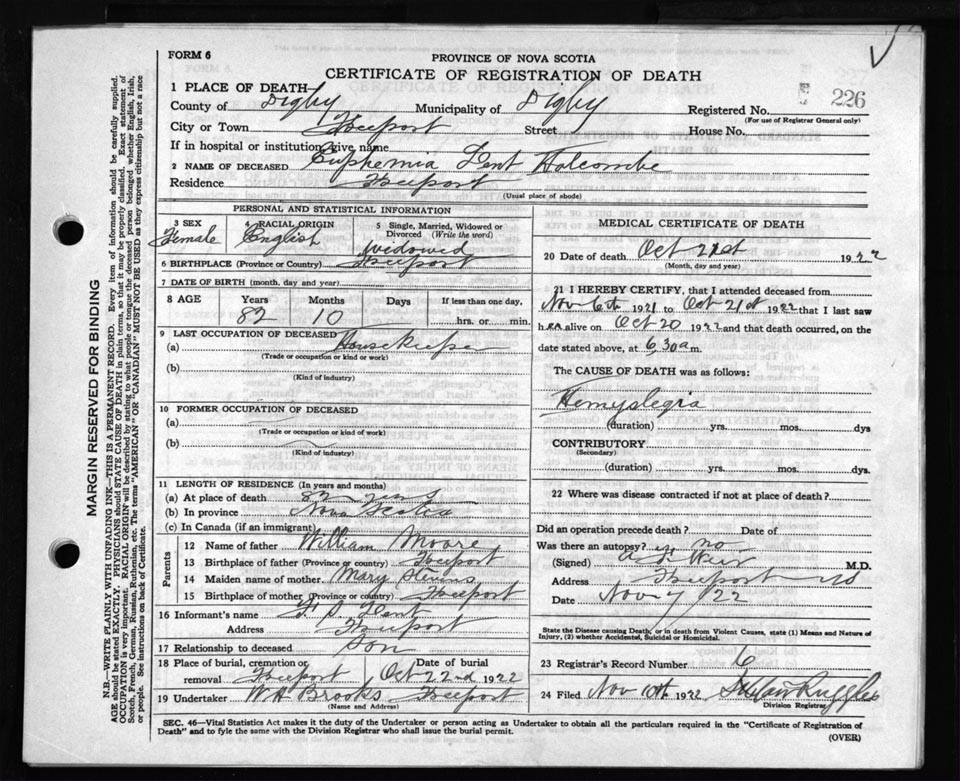 FORM 6
PROVINCE OF NOVA SCOTIA
CERTIFICATE OF REGISTRATION OF DEATH
1 PLACE OF DEATH
County of Digby Municipality of Digby Registered No. 226
(For use of Registrar General only)
City or Town Freeport Street House No.
If in hospital or institution, give name
2 NAME OF DECEASED Euphemia Lent Holcombe
Residence Freeport
(Usual place of abode)
PERSONAL AND STATISTICAL INFORMATION
3 SEX 4 RACIAL ORIGIN 5 Single, Married, Widowed or Divorced (Write the word)
Female English widowed
6 BIRTHPLACE (Province or Country) Freeport
7 DATE OF BIRTH (month, day and year)
8 AGE Years Months Days If less than one day,
82 10 hrs. or min.
9 LAST OCCUPATION OF DECEASED
(a) Housekeeper
(Trade or occupation or kind of work)
(b)
(Kind of industry)
10 FORMER OCCUPATION OF DECEASED
(a)
(Trade or occupation or kind of work)
(b)
(Kind of industry)
11 LENGTH OF RESIDENCE (In years and months)
(a) At place of death 82 years
(b) In province Nova Scotia
(c) In Canada (if an immigrant)
Parents
12 Name of father William Moore
13 Birthplace of father (Province or country) Freeport
14 Maiden name of mother Mary Stevens
15 Birthplace of mother (Province or country) Freeport
16 Informant's name Lent
Address Freeport
17 Relationship to deceased Son
18 Place of burial, cremation or removal Date of burial
Freeport Oct 22nd 1922
19 Undertaker W H Brooks Freeport
(Name and Address)
MEDICAL CERTIFICATE OF DEATH
20 Date of death Oct 21st 1922
(Month, day and year)
21 I HEREBY CERTIFY, that I attended deceased from
Nov 6th 1921 to Oct 21st 1922 that I last saw
her alive on Oct 20 1922 and that death occurred, on
date stated above, at 6,30 a m.
The CAUSE OF DEATH was as follows:
Hemyplegia
(duration) yrs. mos. dys
CONTRIBUTORY
(Secondary)
(duration) yrs. mos. dys.
22 Where was disease contracted if not at place of death?
Did an operation precede death? Date of
Was there an autopsy? no
(Signed) Weir M.D.
Address Freeport NS
Date Nov 7 / 22
State the Disease causing Death, or in death from Violent Causes, state (1) Means and Nature of
Injury, (2) whether Accidental, Suicidal or Homicidal.
23 Registrar's Record Number 6
24 Filed Nov 10th 1922 Ruggles
Division Registrar
SEC. 46—Vital Statistics Act makes it the duty of the Undertaker or person acting as Undertaker to obtain all the particulars required in the "Certificate of Registration of
Death" and to fyle the same with the Division Registrar who shall issue the burial permit.
(OVER)
MARGIN RESERVED FOR BINDING
N.B.—WRITE PLAINLY WITH UNFADING INK—THIS IS A PERMANENT RECORD. Every item of information should be carefully supplied.
AGE should be stated EXACTLY. PHYSICIANS should STATE CAUSE OF DEATH in plain terms, so that it may be properly classified. Exact statement of
OCCUPATION is very important. RACIAL ORIGIN will be described by stating to what people or tongue the deceased person belonged whether English, Irish,
Scotch, French, German, Russian, Ruthenian, etc. The terms "AMERICAN" OR "CANADIAN" MUST NOT BE USED as they express citizenship but not a race
or people. See instructions on back of Certificate.